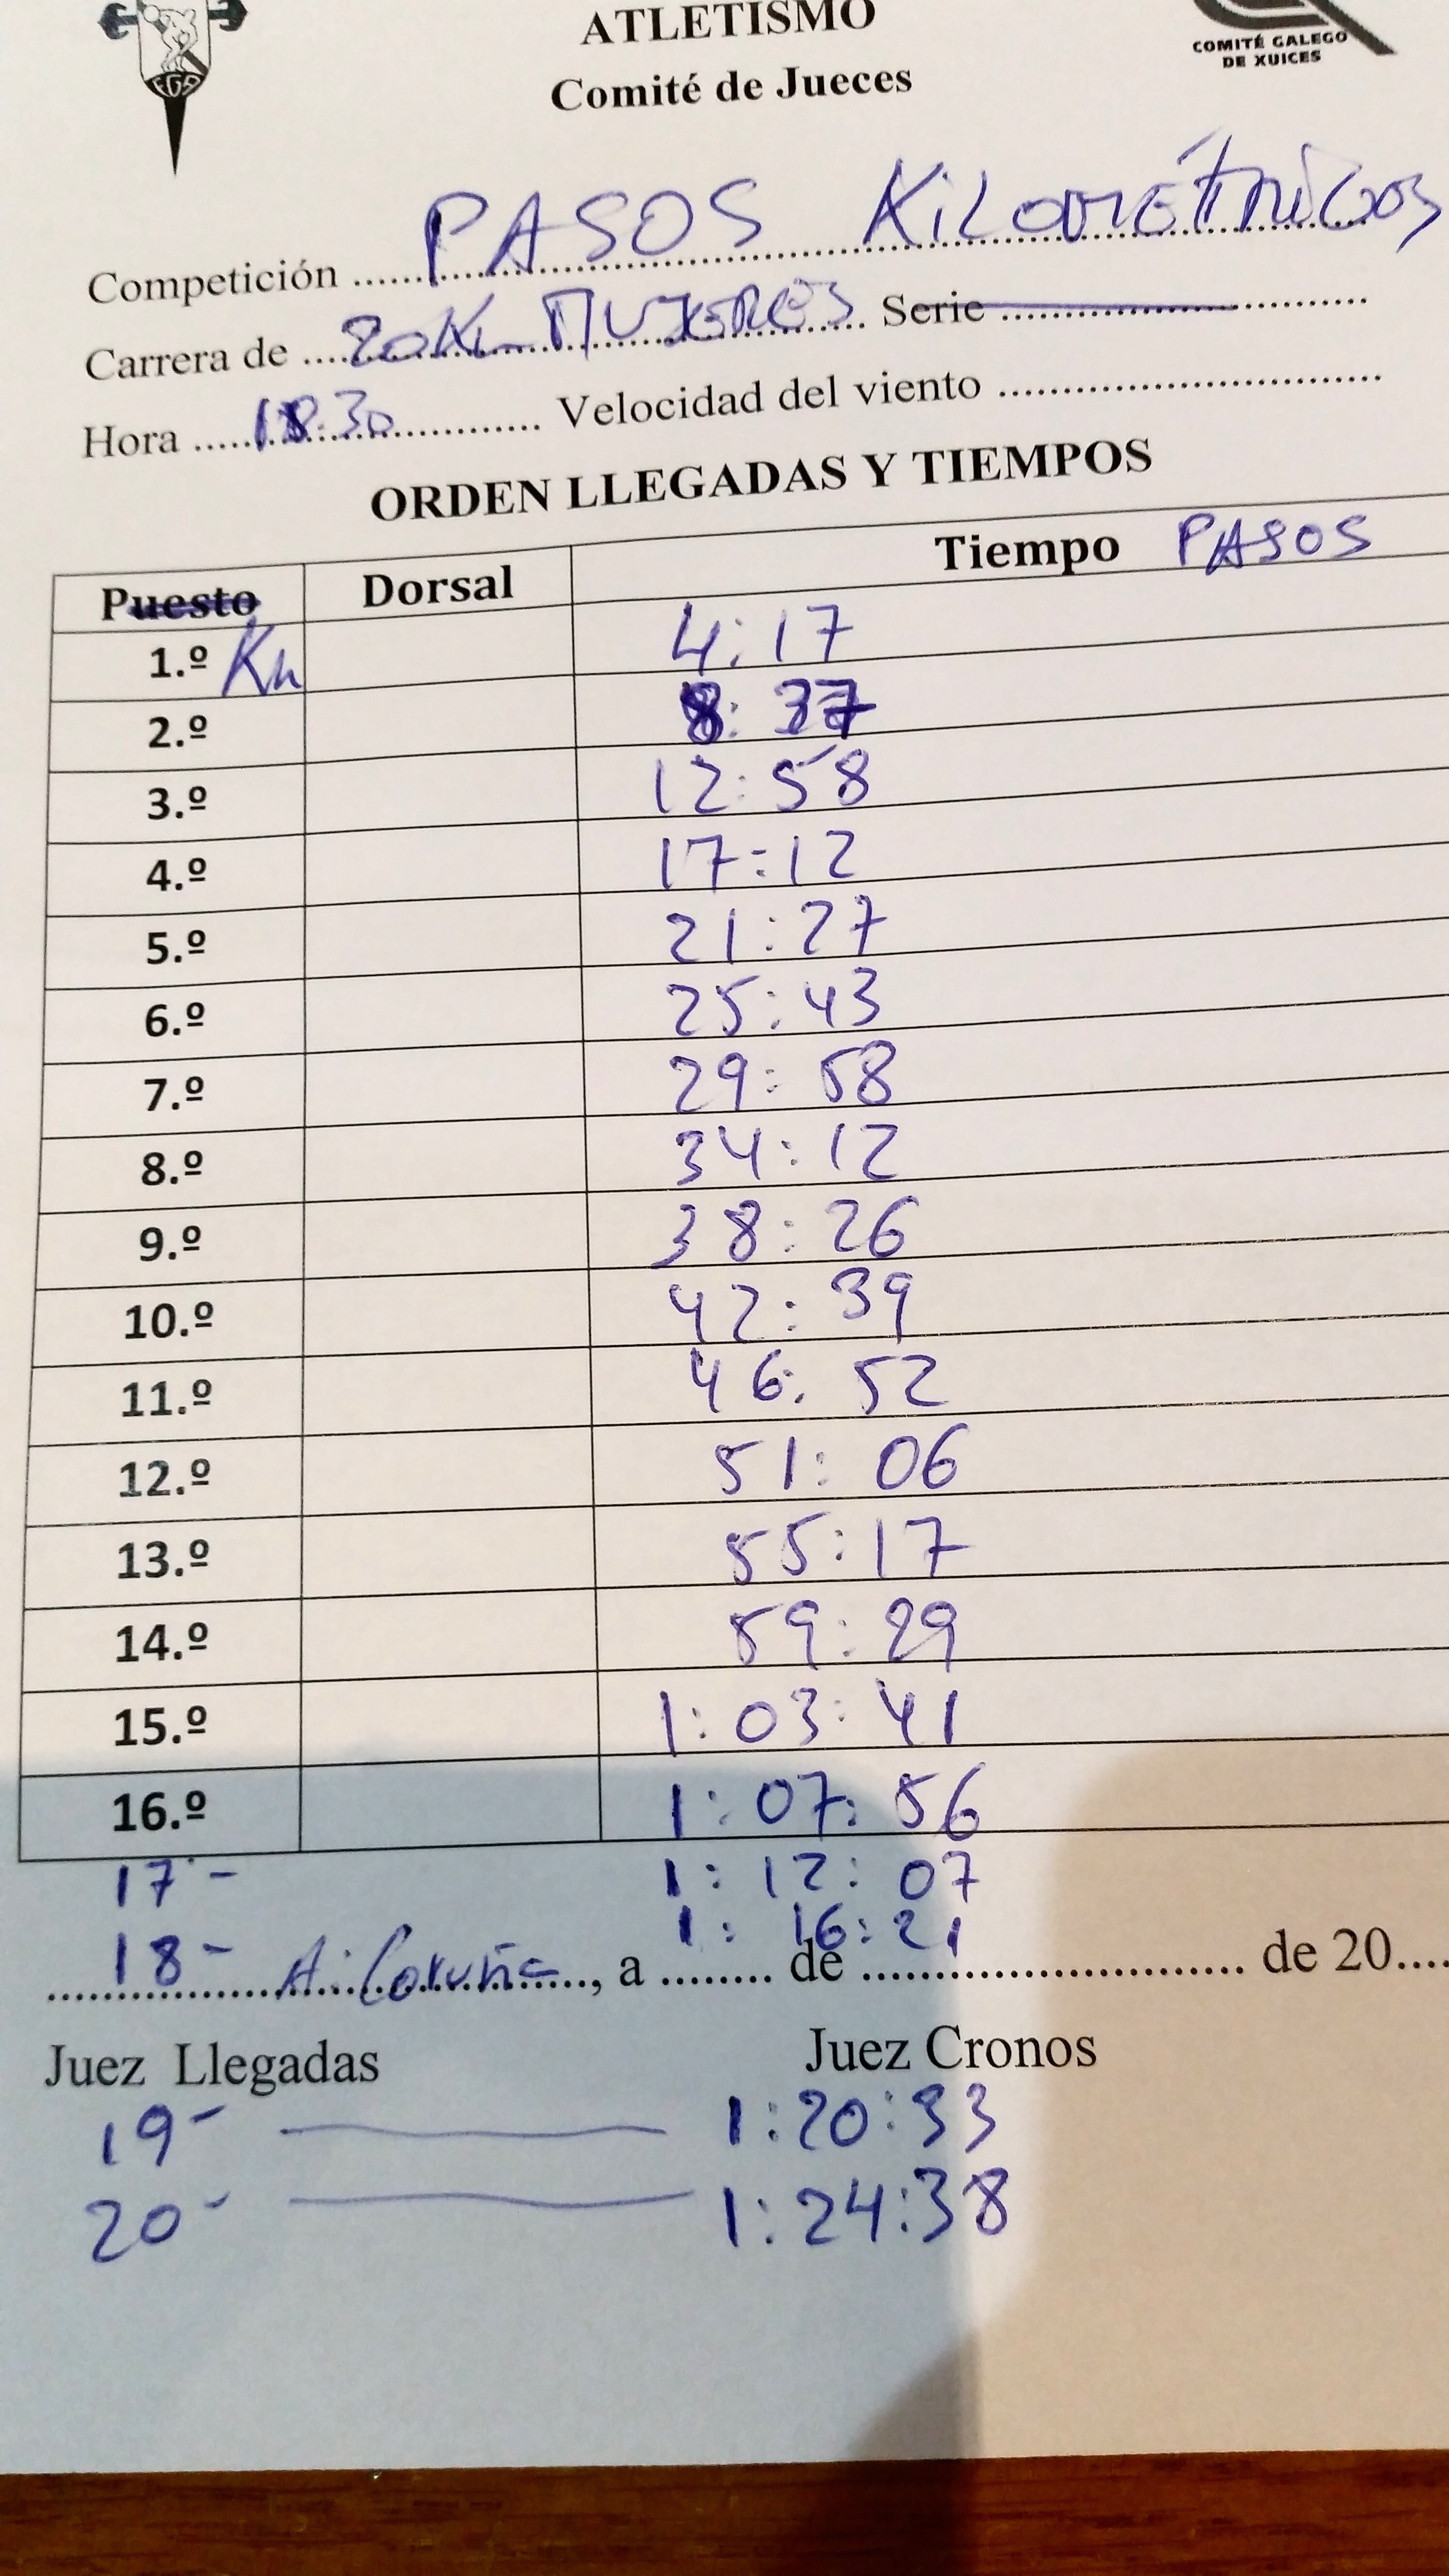 ATLETISMO
Comité de Jueces
FGA
COMITÉ GALEGO
DE XUICES
Competición PASOS KiLOMÉTRICOS
Carrera de 20KM MUJERES Serie
Hora 18:30 Velocidad del viento
ORDEN LLEGADAS Y TIEMPOS
Puesto Dorsal Tiempo PASOS
1.º Km 4:17
2.º 8:37
3.º 12:58
4.º 17:12
5.º 21:27
6.º 25:43
7.º 29:58
8.º 34:12
9.º 38:26
10.º 42:39
11.º 46:52
12.º 51:06
13.º 55:17
14.º 59:29
15.º 1:03:41
16.º 1:07:56
17- 1:12:07
18- 1:16:21
A Coruña, a ........ de .......................... de 20....
Juez Llegadas Juez Cronos
19- 1:20:33
20- 1:24:38